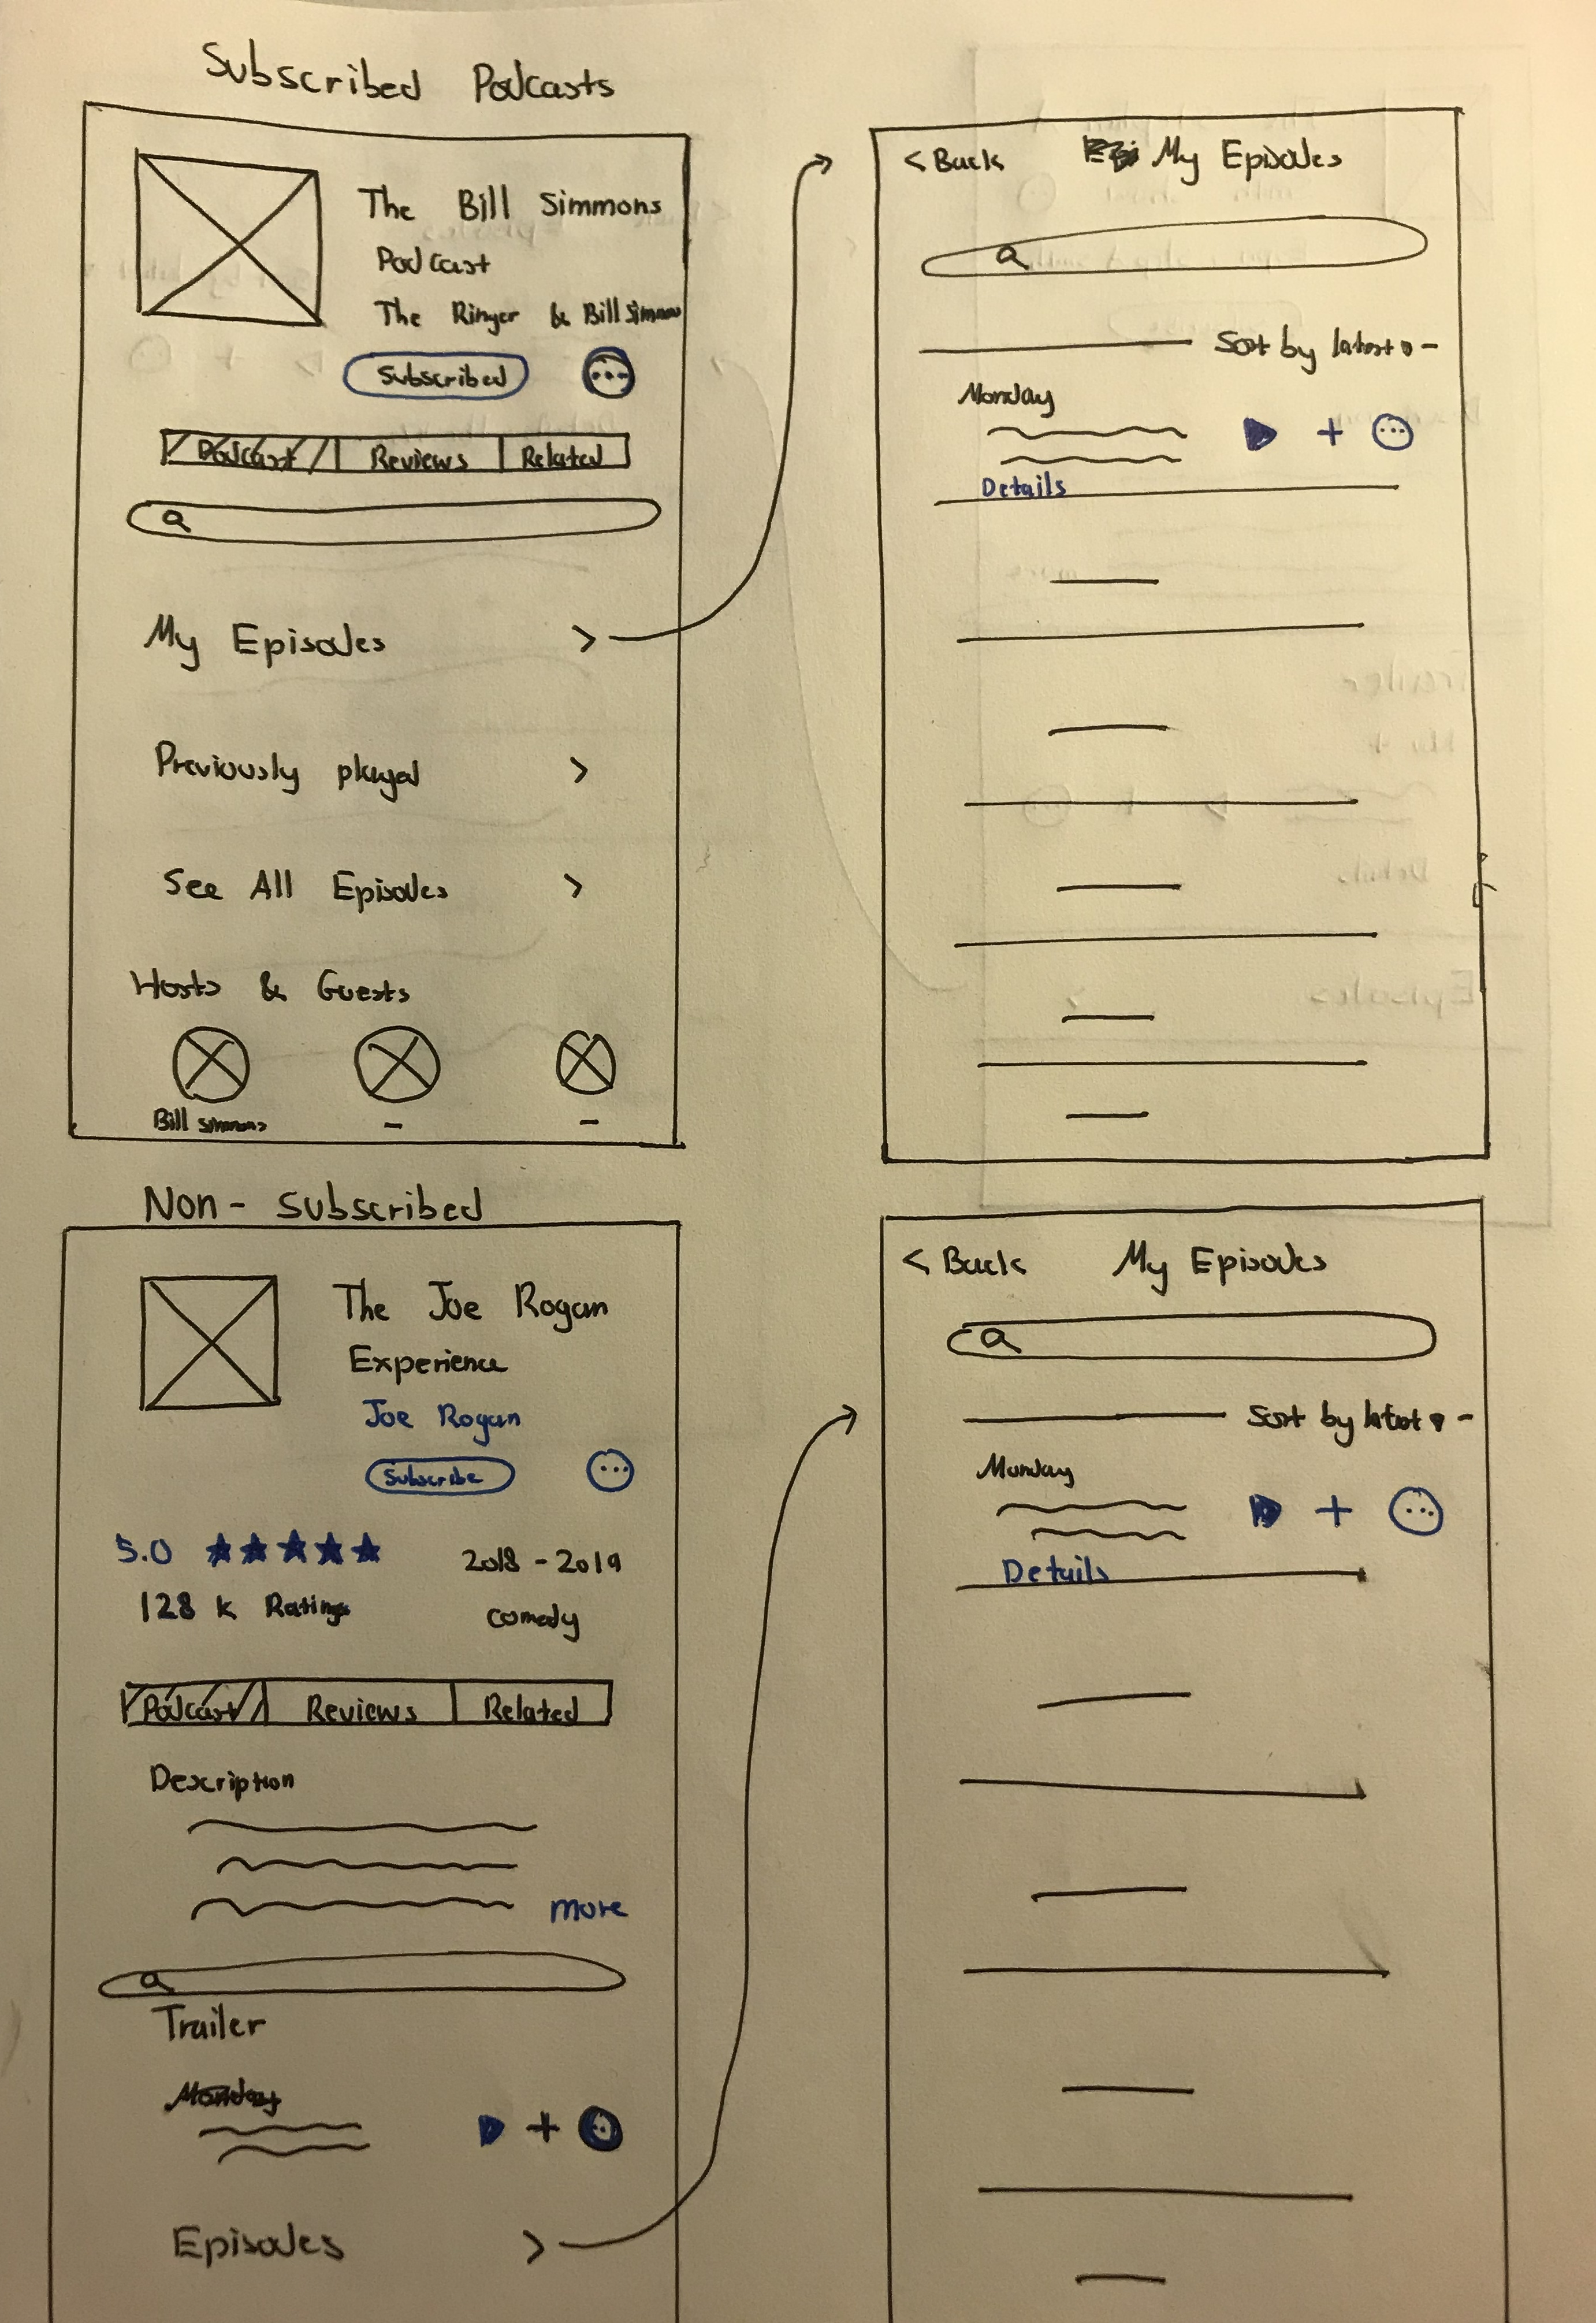 Subscribed Podcasts
The Bill Simmons
Podcast
The Ringer & Bill Simmons
Subscribed
Podcast Reviews Related
My Episodes >
Previously played >
See All Episodes >
Hosts & Guests
Bill Simmons
< Back My Episodes
Sort by latest
Monday
Details
Non - Subscribed
The Joe Rogan
Experience
Joe Rogan
Subscribe
5.0 ★★★★★ 2018 - 2019
128 K Ratings comedy
Podcast Reviews Related
Description
more
Trailer
Monday
Episodes >
< Back My Episodes
Sort by latest
Monday
Details